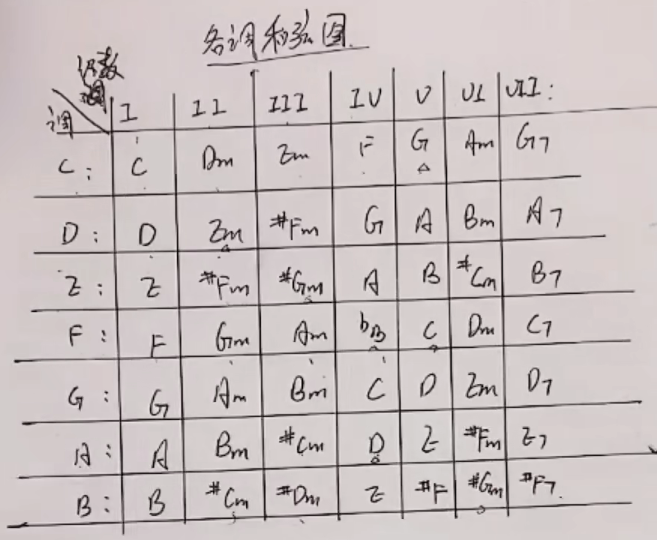 各调和弦图
级数
调
调
I II III IV V VI VII:
C: C Dm Em F G Am G7
D: D Em #Fm G A Bm A7
E: E #Fm #Gm A B #Cm B7
F: F Gm Am bB C Dm C7
G: G Am Bm C D Em D7
A: A Bm #Cm D E #Fm E7
B: B #Cm #Dm E #F #Gm #F7